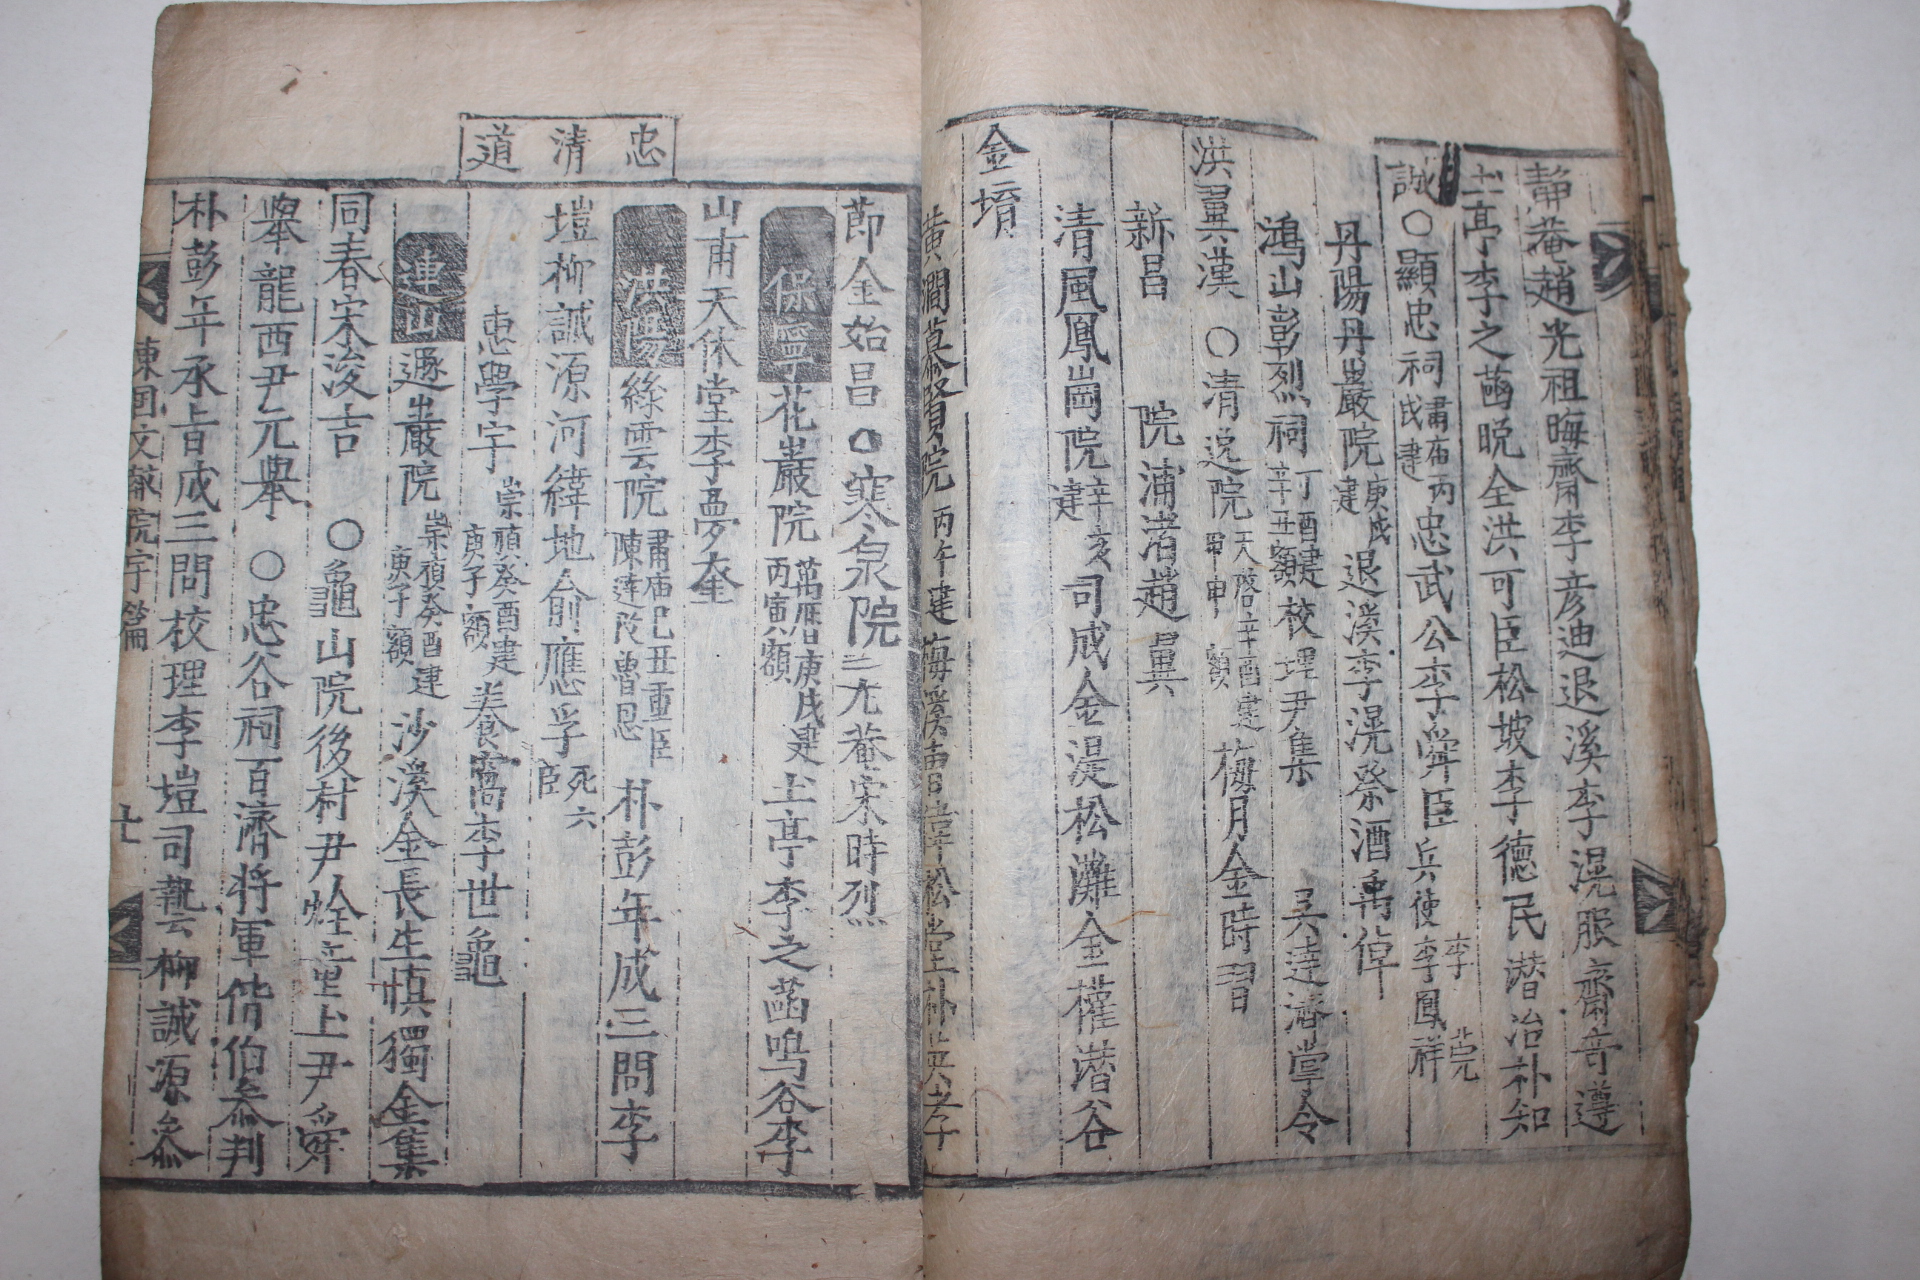 靜菴趙光祖晦齋李彦迪退溪李滉服齋奇遵
土亭李之菡晩全洪可臣松坡李德民潜冶朴知
誡○顯忠祠肅庙丙戌建忠武公李舜臣兵使李鳳祥李莞
丹陽丹巖院庚戌建退溪李滉祭酒禹倬
鴻山彰烈祠丁酉建辛丑額校理尹集 吳達濟掌令
洪翼漢 ○清逸院天啓辛酉建甲申額梅月金時習
新昌 院浦渚趙翼
清風鳳崗院辛亥建司成金湜松灘金權潜谷
金堉
黃澗慕賢院丙午建梅溪曺偉松堂朴英孝
忠清道
節金始昌○寒泉院二尤菴宋時烈
保寧花巖院萬曆庚戌建丙寅額土亭李之菡鳴谷李
山甫天休堂李夢奎
洪陽綠雲院肅庙己丑重臣陳達改魯恩朴彭年成三問李
塏柳誠源河緯地俞應孚死六臣
惠學宇崇禎癸酉建庚子額養窩李世龜
連山遯巖院崇禎癸酉建庚子額沙溪金長生愼獨金集
同春宋浚吉 ○龜山院後村尹烇童土尹舜
擧龍西尹元擧 ○忠谷祠百濟将軍偕伯叅判
朴彭年承旨成三問校理李塏司藝柳誠源叅
東国文献院宇篇 十